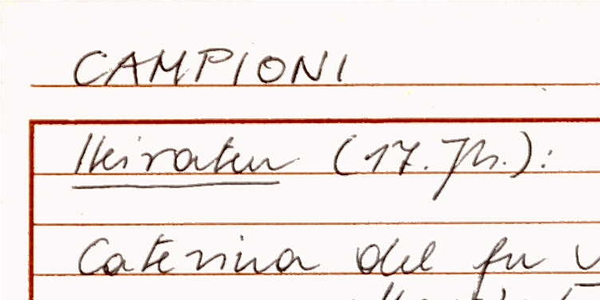 CAMPIONI
Heiraten (17. Jh.):
Caterina del fu